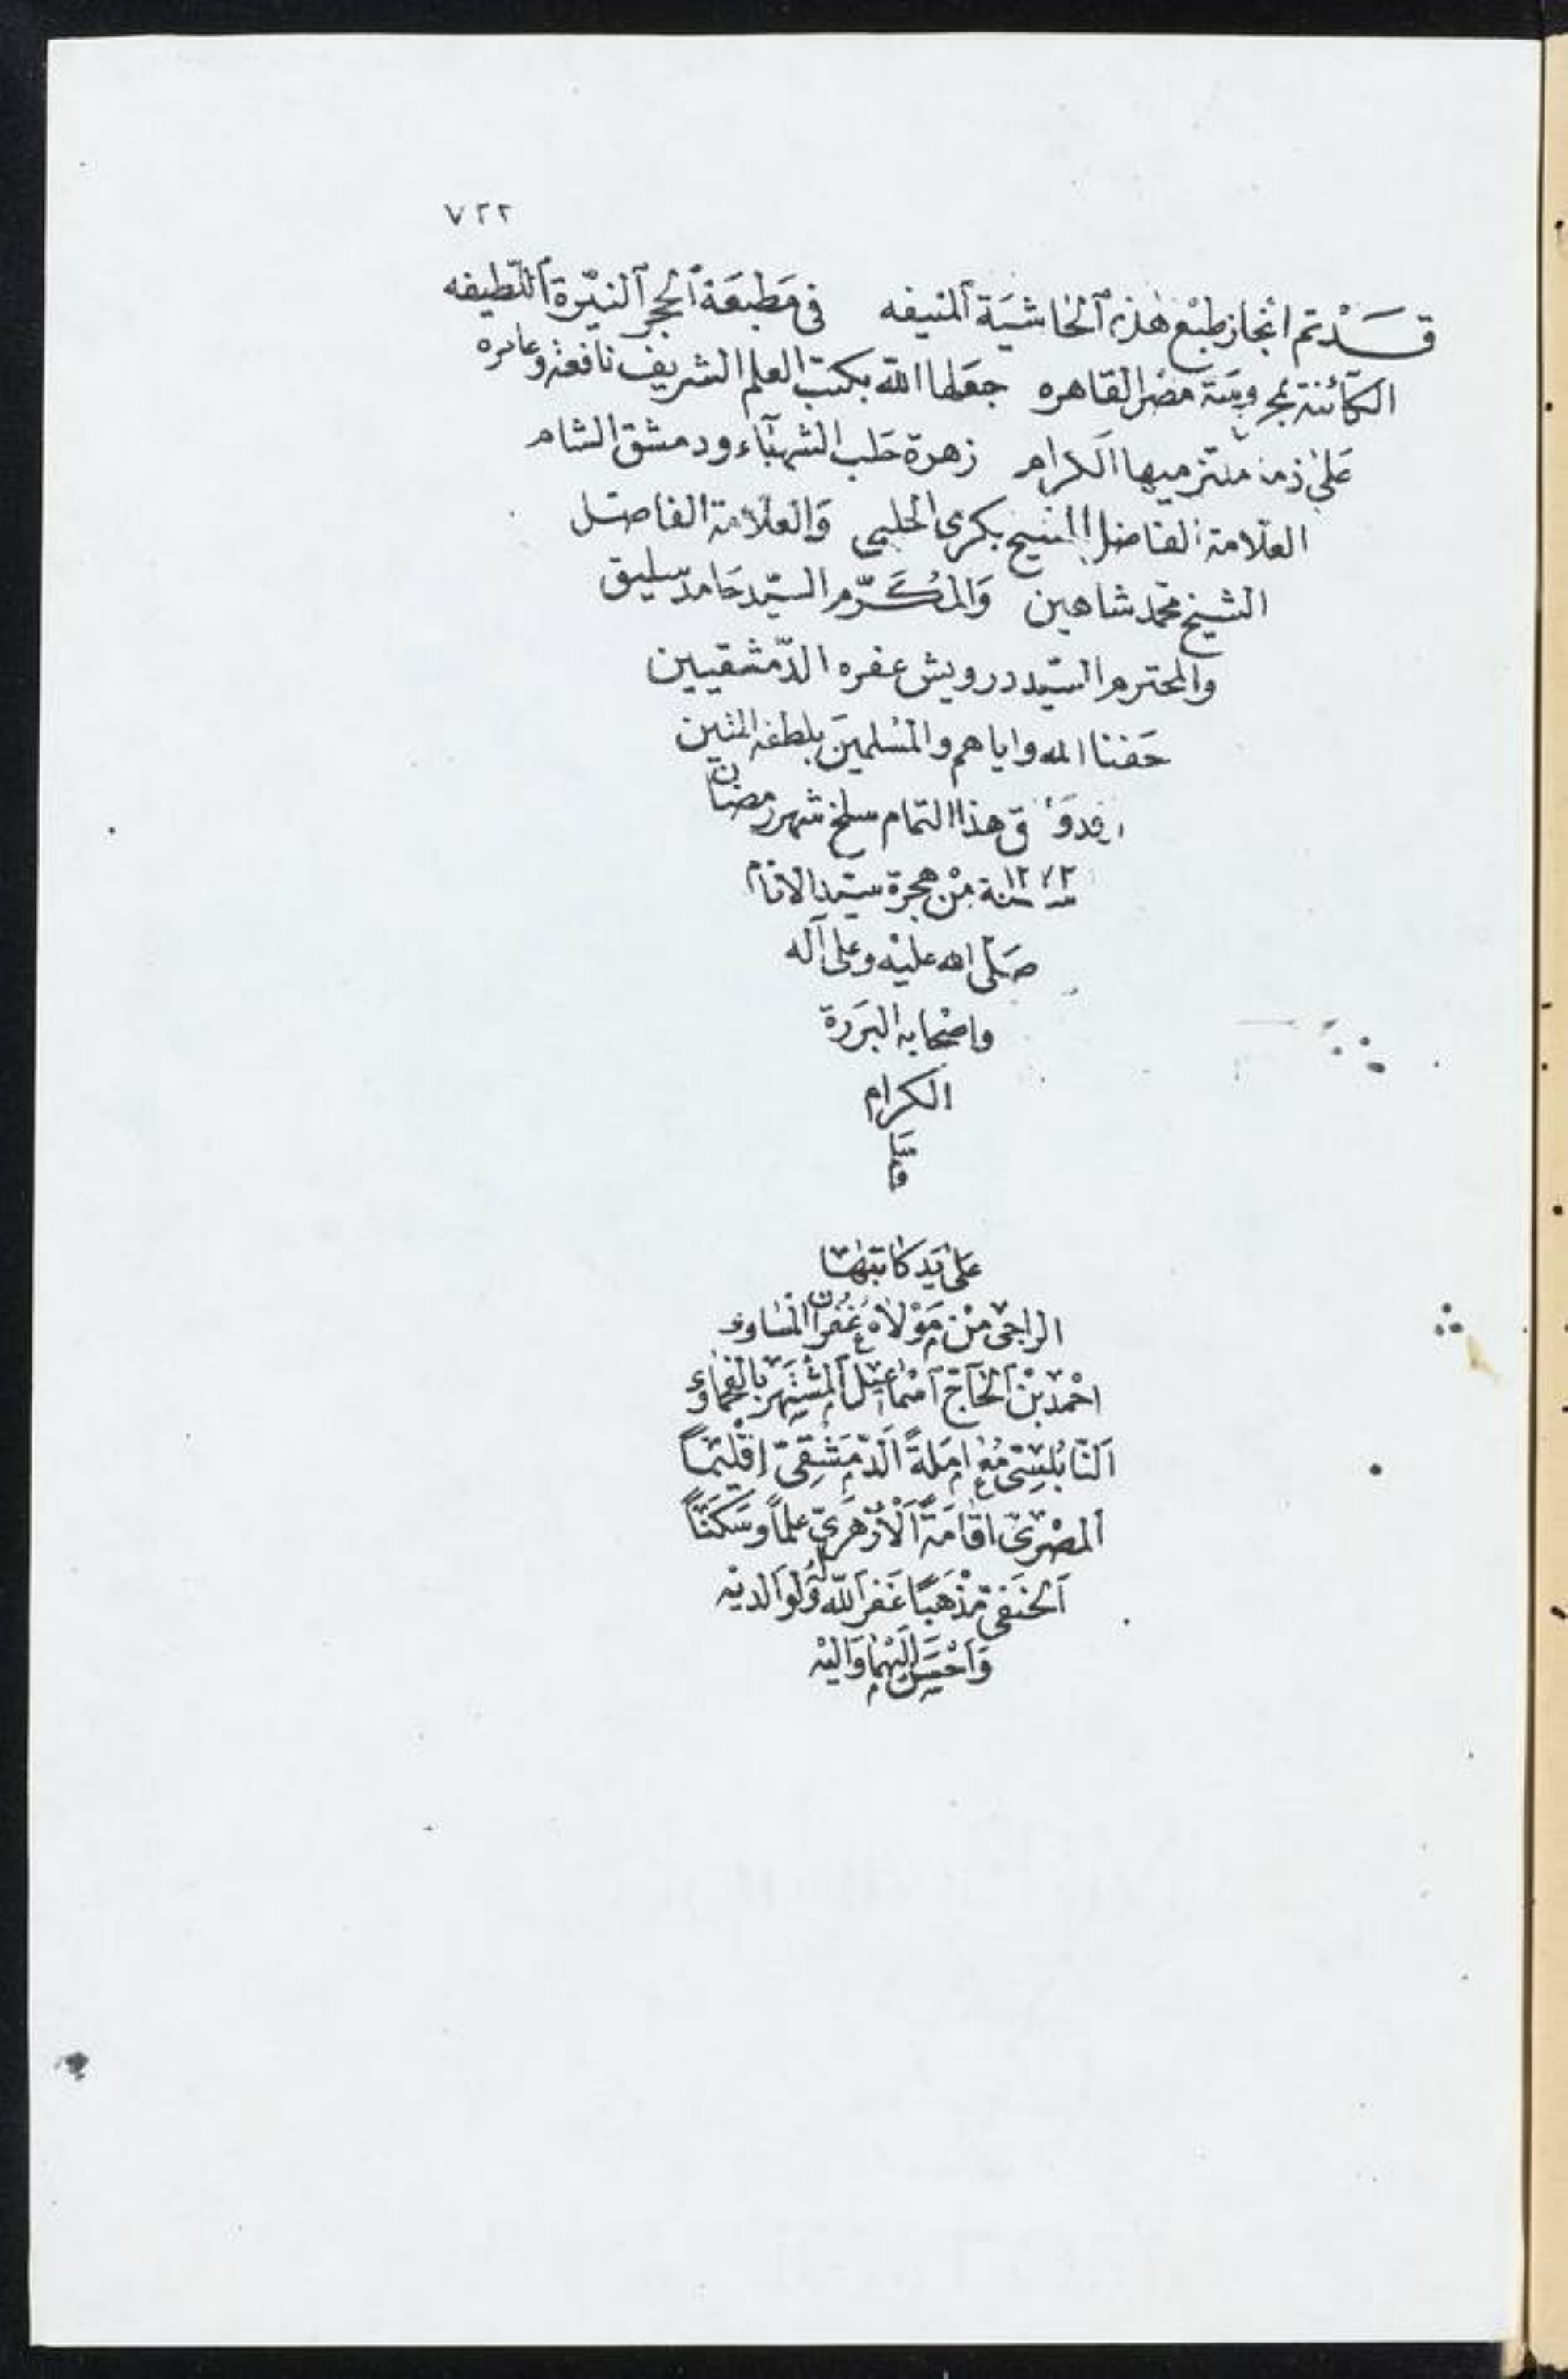 ٧٢٢
قَدْ تم انجاز طبْع هٰذه الحَاشيَة المنيفه في مَطبعَة الحجر النيّرة اللّطيفه
الكآئنة بمحروسَة مصْر القاهره جعَلها اللّه بكتب العلم الشريف نافعة وعامره
عَلى ذمة ملتزميها الكرام زهرة حَلب الشهبآء ودمشق الشام
العلّامة الفاضل الشيخ بكرى الحلبى وَالعلّامة الفاضل
الشيخ محمّد شاهين وَالمكَرّم السيّد حَامد سليق
والمحترم السيّد درويش عفره الدّمشقيين
حَفنا الله واياهم والمسْلمينَ بلطفه المتين
وَافق هذا التمام سلخ شهر رمضان
سنة ١٢٧٢ منْ هجرة سيّد الانام
صَلّى الله عليْه وعلى آله
واصْحابه البرَرة
الكرام
عَلى يَد كاتبهَا
الراجى منْ مَوْلاه غفران المسَاوى
احْمد بْن الحَاجّ اسْماعيْل المشتَهرْ بالفحماوى
اَلنّابُلسىّ مُعَامَلةً اَلدّمَشْقىّ اِقْليمًا
اَلمصْرىّ اقَامَةً اَلْأزْهَرىّ علمًا وسَكَنًا
اَلحنَفىّ مَذْهَبًا غَفرَ اللّه لَهُ وَلوَالديْه
وَاَحْسَنَ اِلَيْهمَا وَاليْه